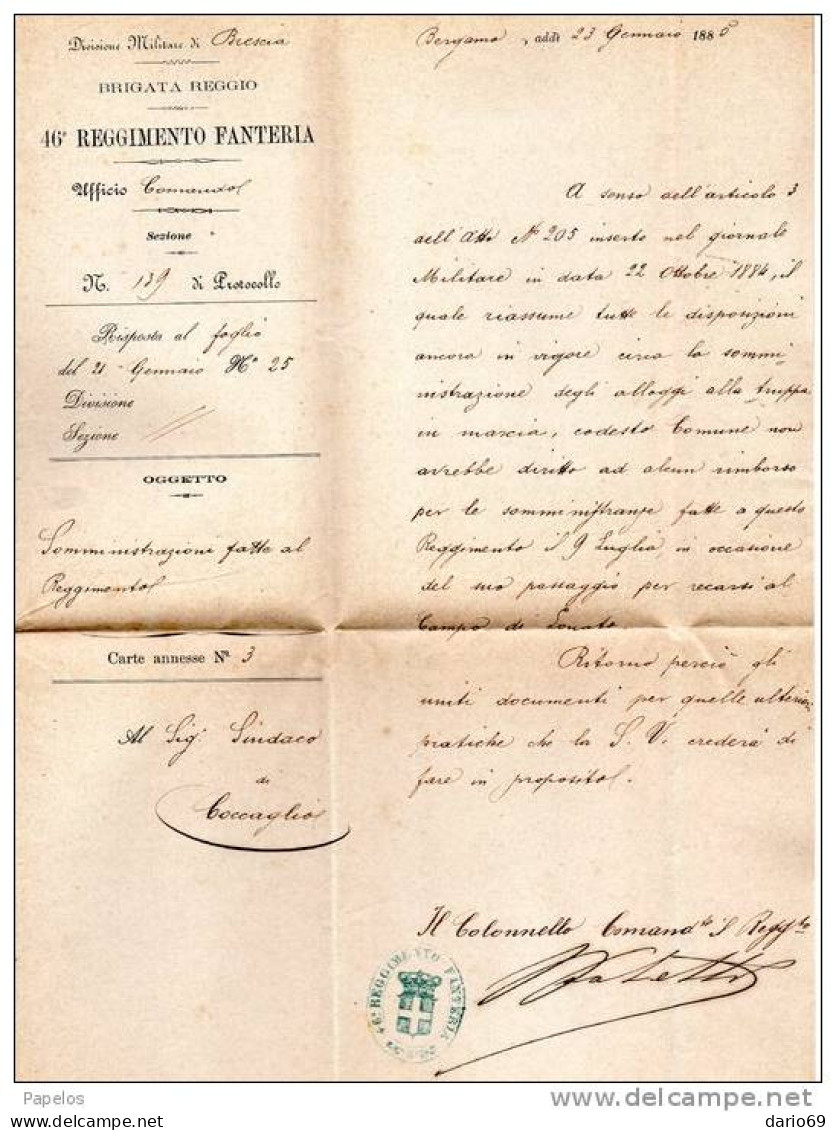 Divisione Militare di Brescia
BRIGATA REGGIO
46° REGGIMENTO FANTERIA
Ufficio Comando
Sezione
N. 139 di Protocollo
Risposta al foglio
del 21 Gennaio N° 25
Divisione
Sezione
OGGETTO
Somministrazioni fatte al
Reggimento
Carte annesse N° 3
Al Sig. Sindaco
di
Coccaglio
Bergamo, addì 23 Gennaio 1885
A senso dell'articolo 3
dell'Atto N° 205 inserto nel giornale
Militare in data 22 Ottobre 1884, il
quale riassume tutte le disposizioni
ancora in vigore circa la sommi-
nistrazione degli alloggi alla truppa
in marcia, codesto Comune non
avrebbe diritto ad alcun rimborso
per le somministranze fatte a questo
Reggimento il 9 Luglio, in occasione
del suo passaggio per recarsi al
Campo di Lonato.
Ritorno perciò gli
uniti documenti per quelle ulteriori
pratiche che la S. V. crederà di
fare in proposito.
Il Colonnello Comand.te il Regg.to
46° REGGIMENTO FANTERIA
Papelos
delcampe.net
dario69